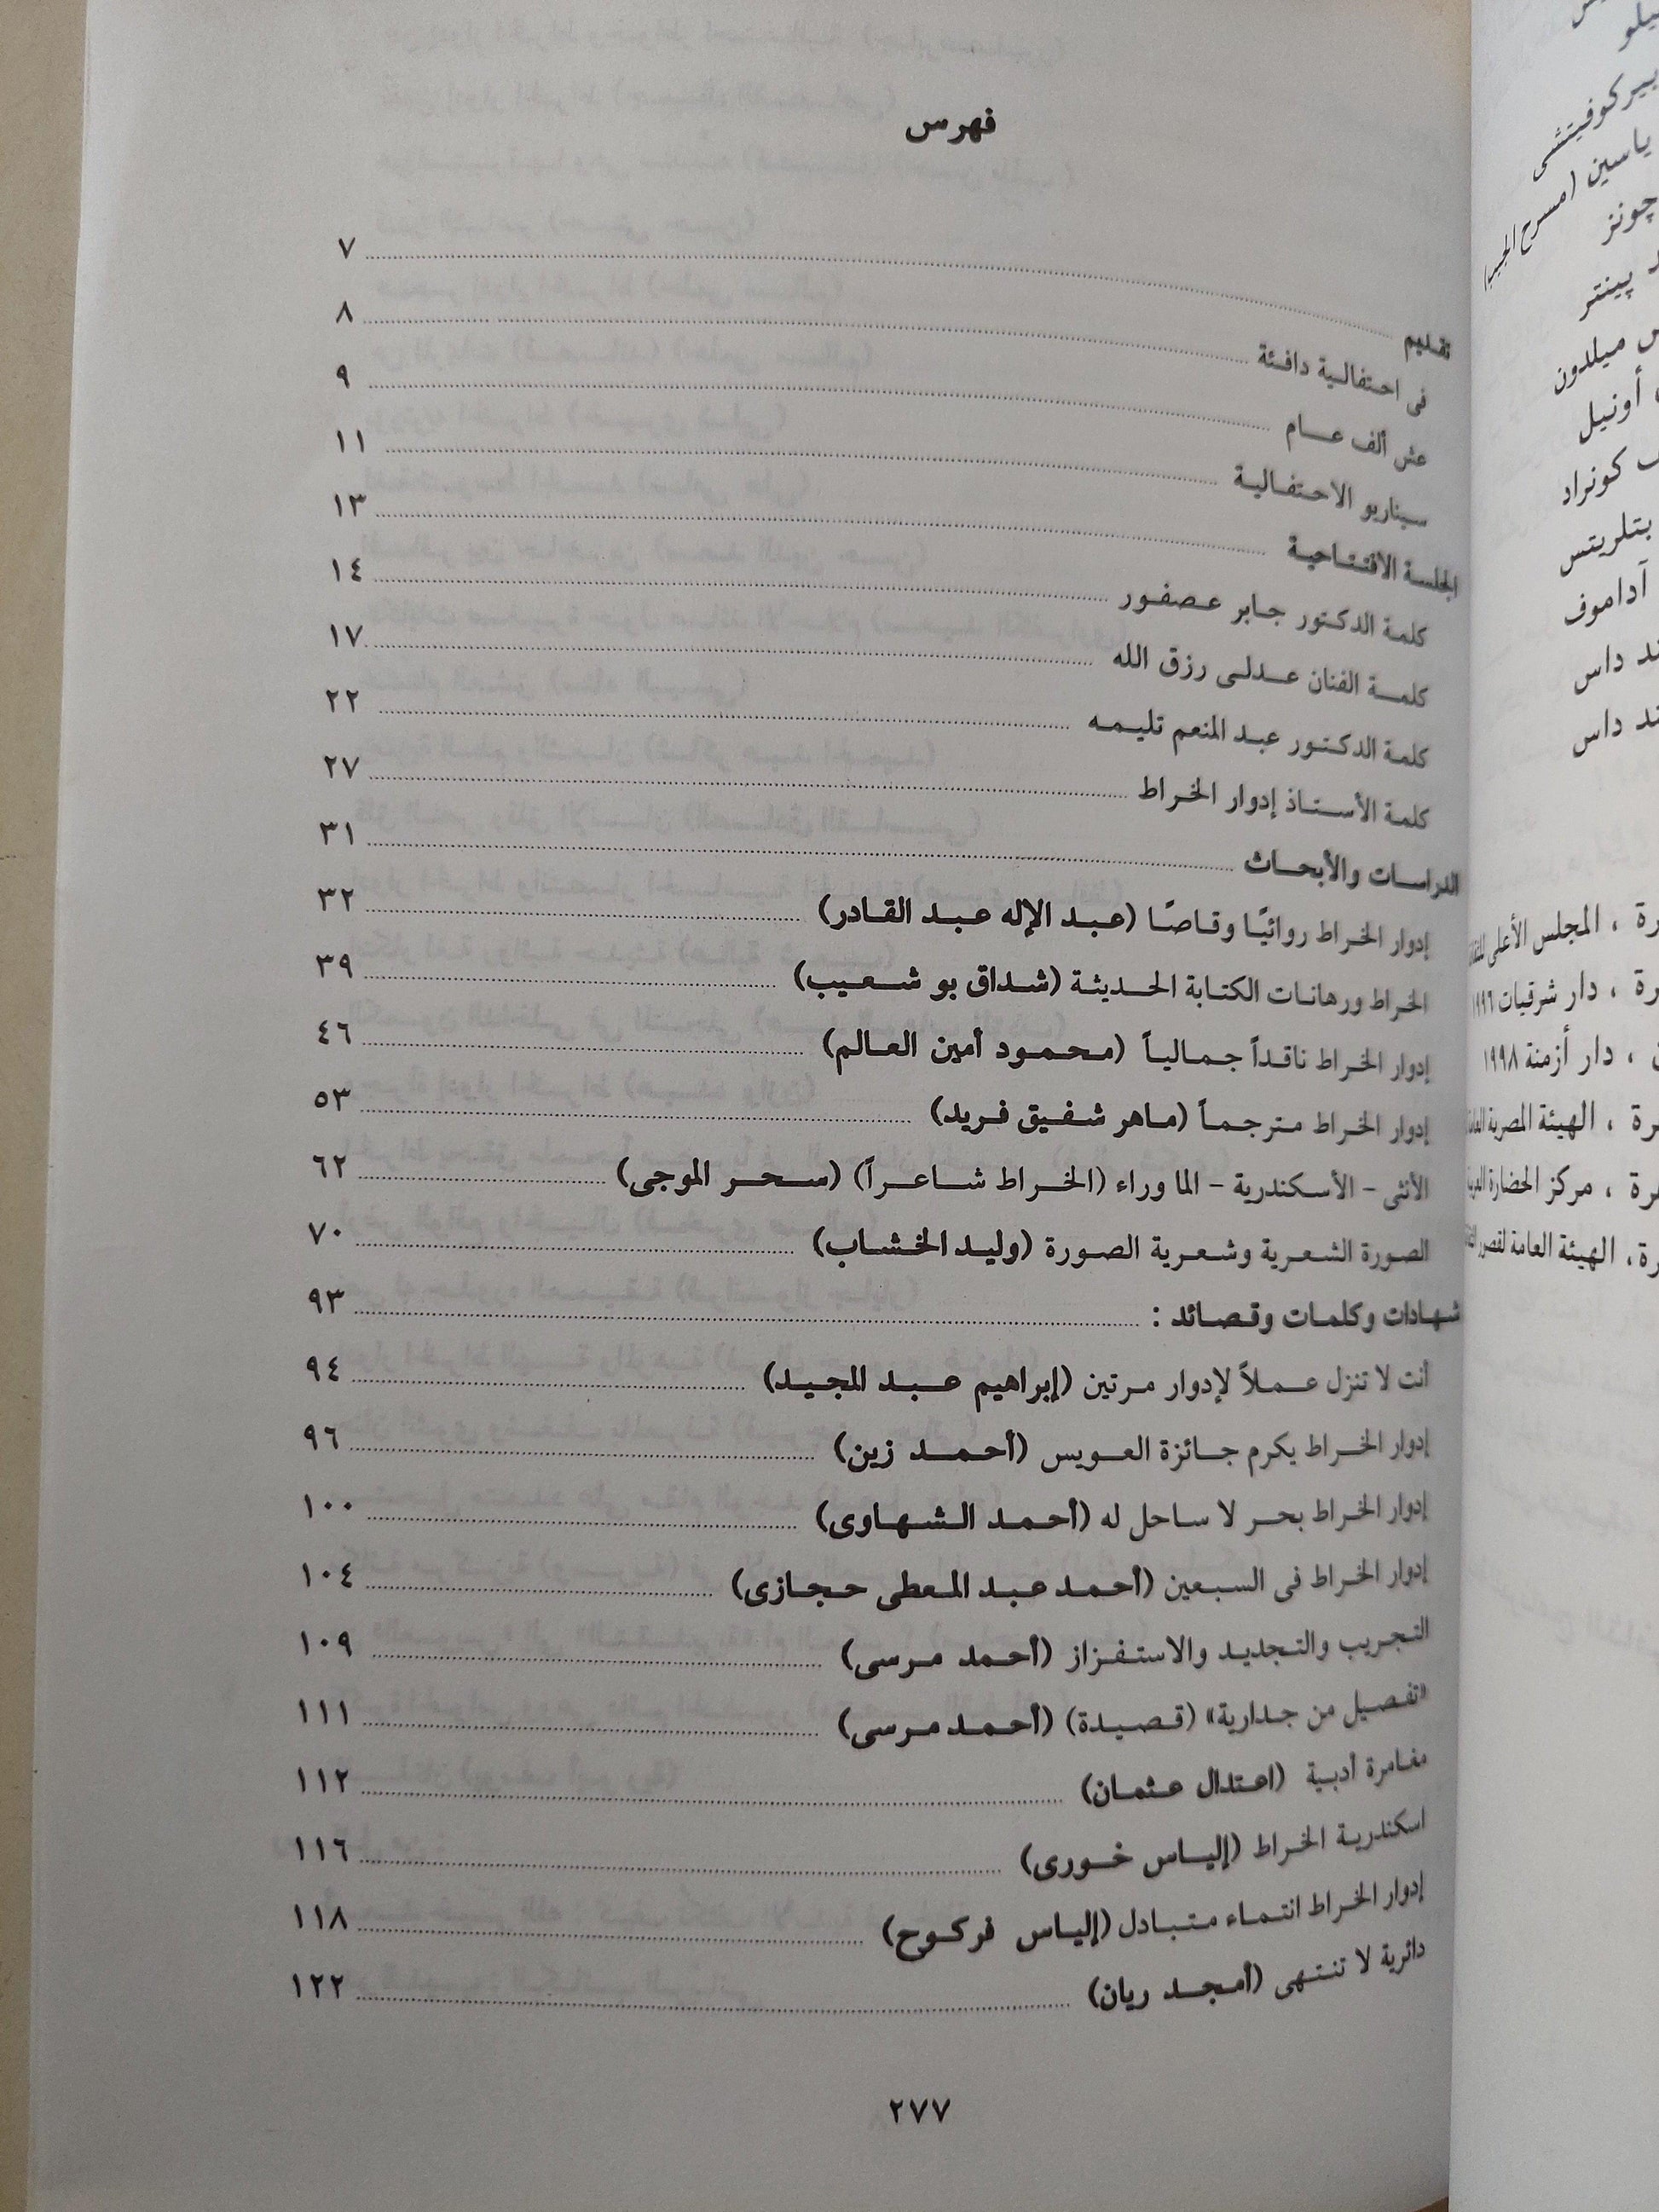 فهرس
تقديم ٧
فى احتفالية دافئة ٨
عش ألف عام ٩
سيناريو الاحتفالية ١١
الجلسة الافتتاحية ١٣
كلمة الدكتور جابر عصفور ١٤
كلمة الفنان عدلى رزق الله ١٧
كلمة الدكتور عبد المنعم تليمه ٢٢
كلمة الأستاذ إدوار الخراط ٢٧
الدراسات والأبحاث ٣١
إدوار الخراط روائيًا وقاصًا (عبد الإله عبد القادر) ٣٢
الخراط ورهانات الكتابة الحديثة (شداق بو شعيب) ٣٩
إدوار الخراط ناقداً جمالياً (محمود أمين العالم) ٤٦
إدوار الخراط مترجماً (ماهر شفيق فريد) ٥٣
الأنثى - الأسكندرية - الما وراء (الخراط شاعراً) (سحر الموجى) ٦٢
الصورة الشعرية وشعرية الصورة (وليد الخشاب) ٧٠
شهادات وكلمات وقصائد : ٩٣
أنت لا تنزل عملاً لإدوار مرتين (إبراهيم عبد المجيد) ٩٤
إدوار الخراط يكرم جائزة العويس (أحمد زين) ٩٦
إدوار الخراط بحر لا ساحل له (أحمد الشهاوى) ١٠٠
إدوار الخراط فى السبعين (أحمد عبد المعطى حجازى) ١٠٤
التجريب والتجديد والاستفزاز (أحمد مرسى) ١٠٩
«تفصيل من جدارية» (قصيدة) (أحمد مرسى) ١١١
مغامرة أدبية (اعتدال عثمان) ١١٢
اسكندرية الخراط (إلياس خورى) ١١٦
إدوار الخراط انتماء متبادل (إلياس فركوح) ١١٨
دائرية لا تنتهى (أمجد ريان) ١٢٢
٢٧٧
بيركوفيتشى
ياسين (مسرح الجيب)
چونز
پينتر
ميلدون
أونيل
كونراد
بتلريتس
آداموف
داس
داس
، المجلس الأعلى
، دار شرقيات ١٩٩٦
، دار أزمنة ١٩٩٨
، الهيئة المصرية
، مركز الحضارة
، الهيئة العامة لقصور